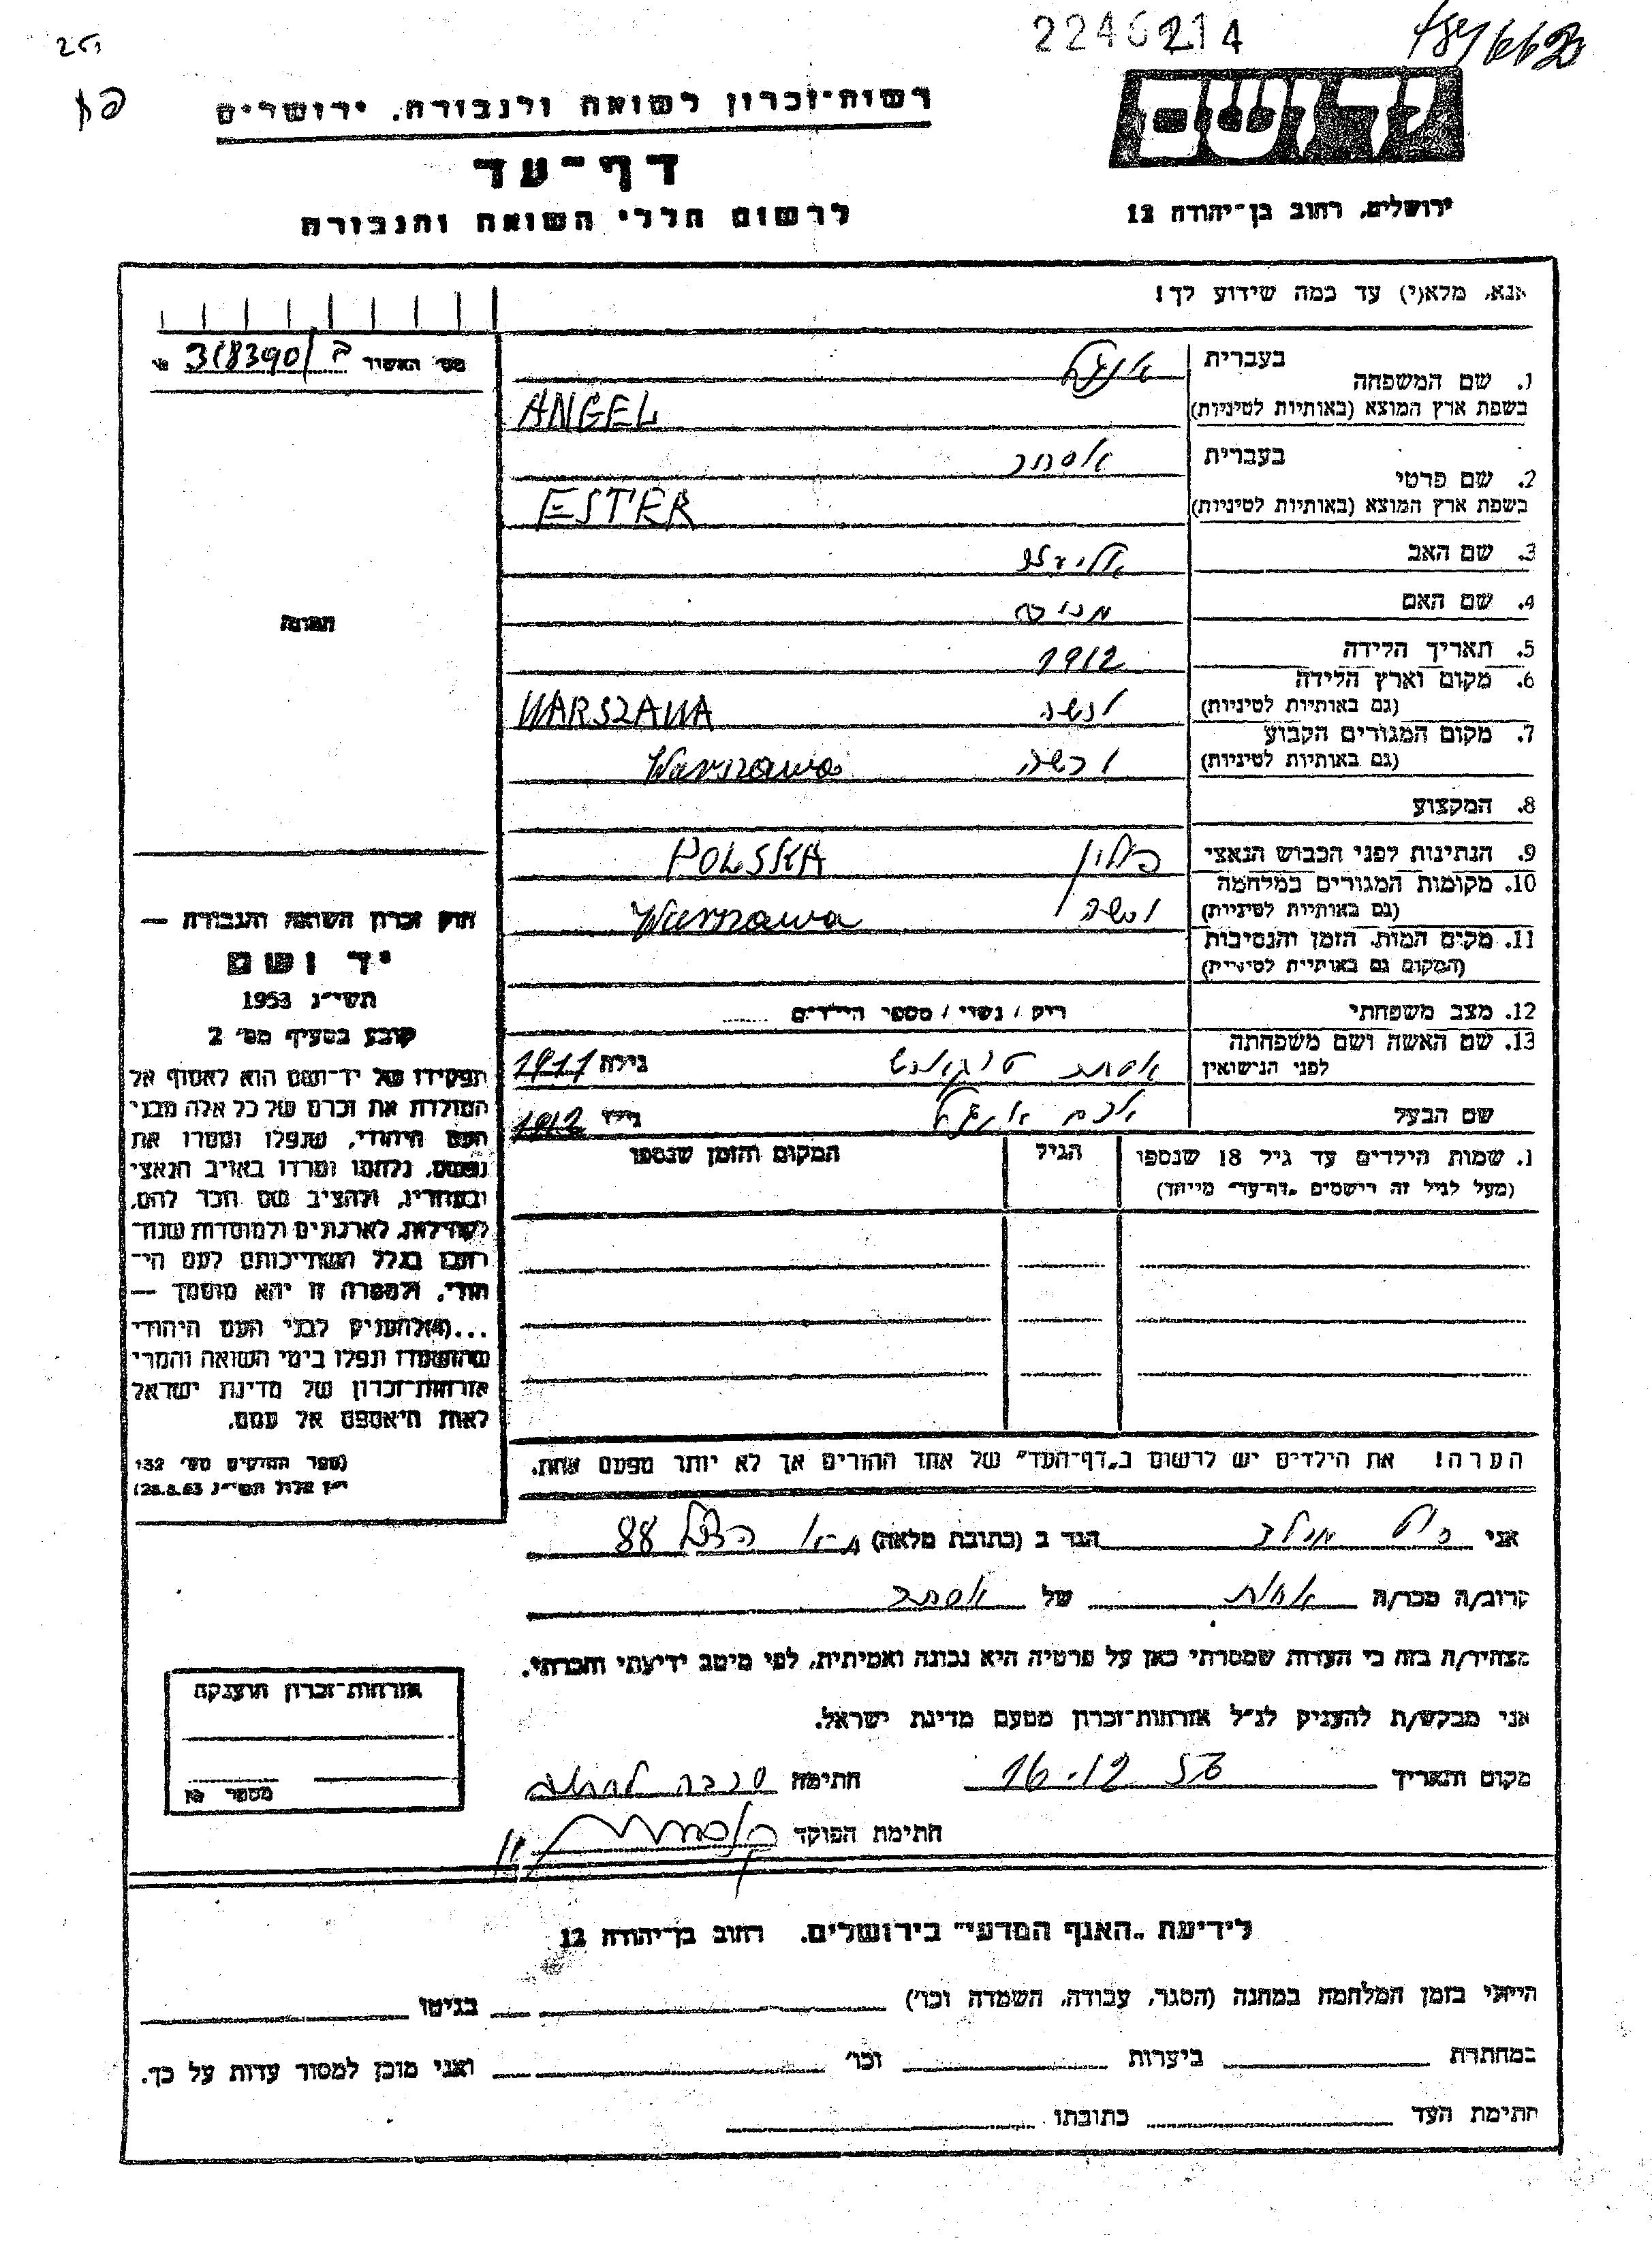 2246214
יד ושם
רשות-זכרון לשואה ולגבורה, ירושלים
דף-עד
לרשום חללי השואה והגבורה
ירושלים, רחוב בן-יהודה 12
אנא, מלא(י) עד כמה שידוע לך!
מס' האשור 318390
1. שם המשפחה
בעברית אנגל
בשפת ארץ המוצא (באותיות לטיניות) ANGEL
2. שם פרטי
בעברית אסתר
בשפת ארץ המוצא (באותיות לטיניות) ESTER
3. שם האב
4. שם האם
5. תאריך הלידה 1912
6. מקום וארץ הלידה
(גם באותיות לטיניות) ורשה WARSZAWA
7. מקום המגורים הקבוע
(גם באותיות לטיניות) ורשה Warszawa
8. המקצוע
9. הנתינות לפני הכבוש הנאצי פולין POLSKA
10. מקומות המגורים במלחמה
(גם באותיות לטיניות) ורשה Warszawa
11. מקום המות, הזמן והנסיבות
(המקום גם באותיות לטיניות)
12. מצב משפחתי רוק / נשוי / מספר הילדים
13. שם האשה ושם משפחתה
לפני הנישואין אסתר גילה 1911
שם הבעל אנגל גילו 1912
1. שמות הילדים עד גיל 18 שנספו
(מעל לגיל זה רישמים "דף-עד" מייחד)
הגיל
המקום והזמן שנספו
הערה! את הילדים יש לרשום ב"דף-העד" של אחד ההורים אך לא יותר מפעם אחת.
תמונה
חוק זכרון השואה והגבורה —
יד ושם
תשי"ג 1953
קובע בסעיף מס' 2
תפקידו של יד-ושם הוא לאסוף אל
המולדת את זכרם של כל אלה מבני
העם היהודי, שנפלו ומסרו את
נפשם, נלחמו ומרדו באויב הנאצי
ובעוזריו, ולהציב שם וזכר להם,
לקהילות, לארגונים ולמוסדות שנח-
רבו בגלל השתייכותם לעם הי-
הודי, ולמטרה זו יהא מוסמך —
...(4) להעניק לבני העם היהודי
שהושמדו ונפלו בימי השואה והמרי
אזרחות-זכרון של מדינת ישראל
לאות היאספם אל עמם.
(ספר החוקים מס' 132
י"ז אלול תשי"ג 28.8.53)
אני הגר ב (כתובת מלאה) 88
קרוב/ה מכר/ה של אסתר
מצהיר/ה בזה כי העדות שמסרתי כאן על פרטיה היא נכונה ואמיתית, לפי מיטב ידיעתי והכרתי.
אני מבקש/ת להעניק לנ"ל אזרחות-זכרון מטעם מדינת ישראל.
מקום ותאריך 16.12 חתימה
חתימת הפוקד
אזרחות-זכרון הוענקה
מספר
לידיעת "האגף המדעי" בירושלים, רחוב בן-יהודה 12
הייתי בזמן המלחמה במחנה (הסגר, עבודה, השמדה וכו') בגיטו
במחתרת ביערות וכו' ואני מוכן למסור עדות על כך.
חתימת העד כתובתו